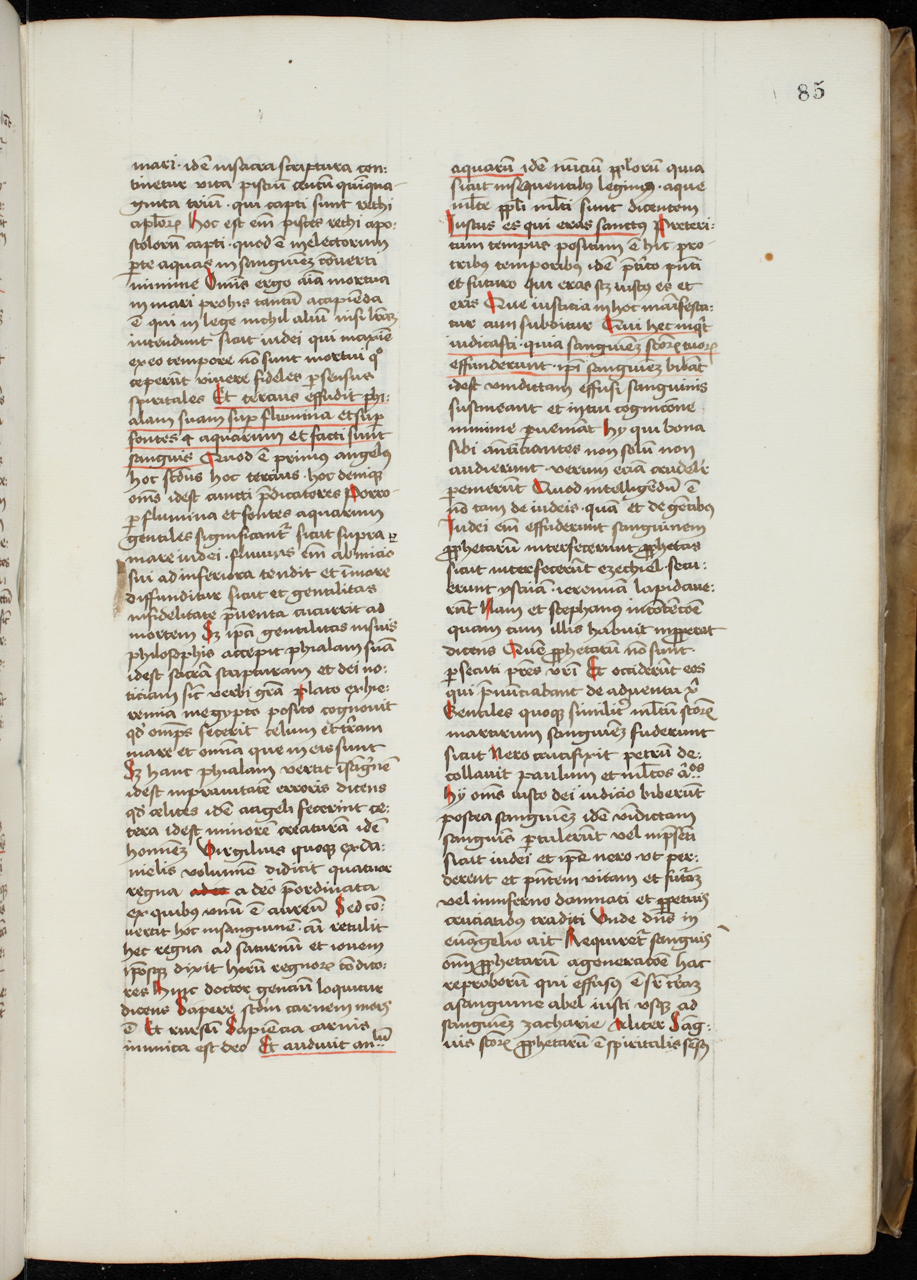 85
mari· idē in sacra scriptura con:
tinetur vita pisciū centū quīqua-
ginta triū· qui capti sunt rethi
aplor̄ Hoc est em̄ pisces rethi apo:
stolorū capti· quod ē in electorum
ꝑte aquas in sanguinez cōuerti
minime Omīs ergo aīa mortua
in mari prohis tantū accipienda
ē qui in lege nichil aliud nisi lr̄az
intendunt sicut iudei qui
ex eo tempore nō sunt mortui qͦ
ceperūt viuere fideles ꝑ sensus
spiritales Et tercius effudit phi:
alam suam suꝑ flumina et suꝑ
fontes aquarum et facti sunt
sanguis Quod ē primus angelus
hoc scd̄us hoc tercius· hoc deniqꝫ
om̄s idest cuncti p̄dicatores Porro-
ꝑ flumina et fontes aquarum
gentiles significant᷑ sicut supra ꝑ
mare iudei· fluuius em̄ ab inicio
sui ad inferiora tendit et ī mare
diffunditur sicut et gentilitas
infidelitate p̄uenta cucurrit ad
mortem Sꝫ ip̄a gentilitas in suis
philosophis accepit phialam suā
idest sacrā scripturam et dei no:
ticiam sic̄ verbi grā Plato ex hie:
remia in egypto posito cognouit
qd̄ om̄ps fecerit celum et t̄ram
mare et omīa que in eis sunt
Sꝫ hanc phialam vertit ī sāg͛nē
idest in prauitatē erroris dicens
qd̄ celites idē angeli fecerint ce:
tera idest minorē creaturā idē
hominez Virgilius quoqꝫ ex da:
nielis volumine didicit quatuor
regna a deo p̄ordinata
ex quibus vnū ē aureū Sed cō:
uertit hoc in sanguinē· cū retulit
hec regna ad saturnū et iouem
ip̄osqꝫ dixit horū regnor̄ cōdito:
res Hinc doctor gencium loquitur
dicens Sapere scd̄m carnem mors
ē Et rursū Sapiencia carnis
inimica est deo Et audiuit an:lū
aquarū idē nūciū ppl̄orū quia
sicut in sequentibus legimꝰ· aque
ml̄te ppl̄i ml̄ti sunt dicentem
Iustus es qui eras sanctꝰ Preteri:
tum tempus positum ē hic pro
tribus temporibus idē p̄t̄ito pn̄ti
et futuro qui eras sꝫ iustꝰ es et
eris Que iusticia in hoc manifesta:
tur cum subditur Qui hec inqͥt
iudicasti· quia sanguinez sc̄tor̄ tuor̄
effunderunt· ip̄i sanguinez bibāt
idest vindictam effusi sanguinis
sustineant et in tui cognicōne
minime ꝑueniāt Hy qui bona
sibi ānūciantes non solū non
audierunt· verum eciā crudelit͛
ꝑemerūt Quod intelligendū ē
nō tam de iudeis· quā et de gentibꝰ
Iudei em̄ effuderunt sanguinem
ꝓphetarū interfecerunt ꝓphetas
sicut interfecerūt ezechiel· secu:
erunt ysaiam· ieremiā lapidaue:
rūt Nam et stephanus
quam cum illis habuit
dicens Quē ꝓphetarū nō sunt
ꝑsecuti pr̄es vr̄i Et occiderūt eos
qui p̄nūciabant de aduentu xͥ
Gentiles quoqꝫ similit͛ ml̄tū sc̄tor̄
martirum sanguinez fuderunt
sicut Nero crucifixit petrū de:
collauit paulum et ml̄tos aͦos
Hy om̄s iusto dei iudicio biberūt
postea sanguinez idē vīdictam
sanguīs ꝑtulerūt vel inp̄sēti
sicut iudei et ip̄e nero· vt per:
derent et pn̄tem vitam et futāz
vel in inferno damnati et ꝑpetuis
cruciatibus traditi Vnde dn̄s in
eūangelio ait Requiret᷑ sanguis
oīm ꝓphetarū a generacōe hac
reproborum qui effusꝰ ē sr̄ t̄raz
a sanguine abel iusti vsqꝫ ad
sanguinez zacharie Aliter Sāg:
uis sc̄tor̄ ꝓphetarū ē spiritalis sēsꝫ